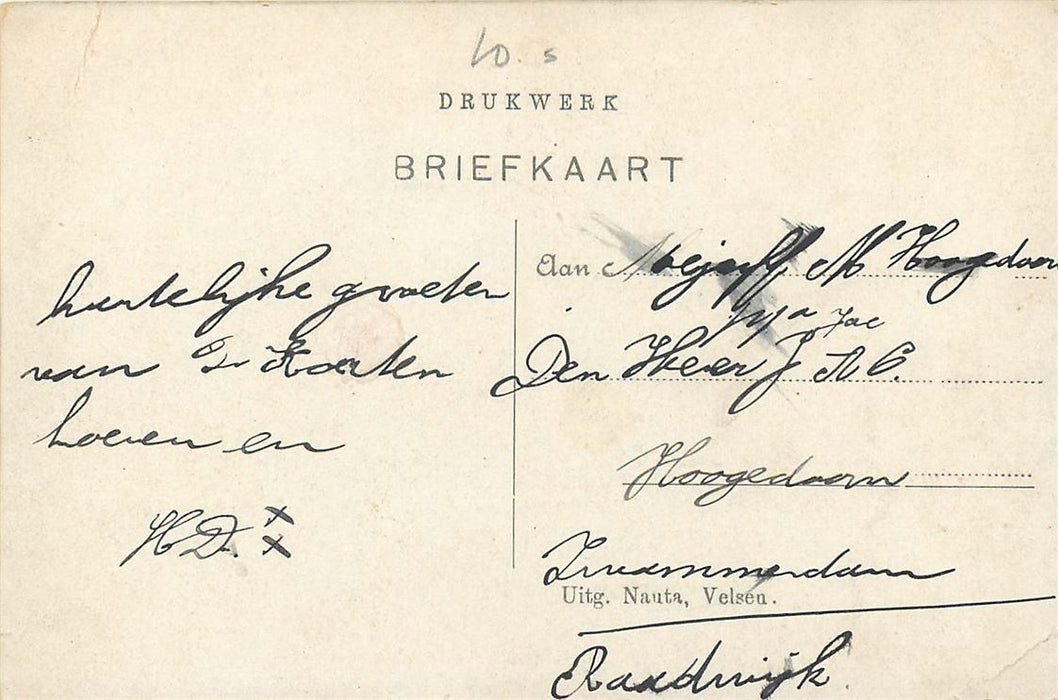 10. s
DRUKWERK
BRIEFKAART
hartelijke groeten
van
hoeven en
H D. x x
Aan Mejuff M Hoogedoorn
p/a Jac
Den Heer J A C.
Hoogedoorn
Zwammerdam
Uitg. Nauta, Velsen.
Raadwijk